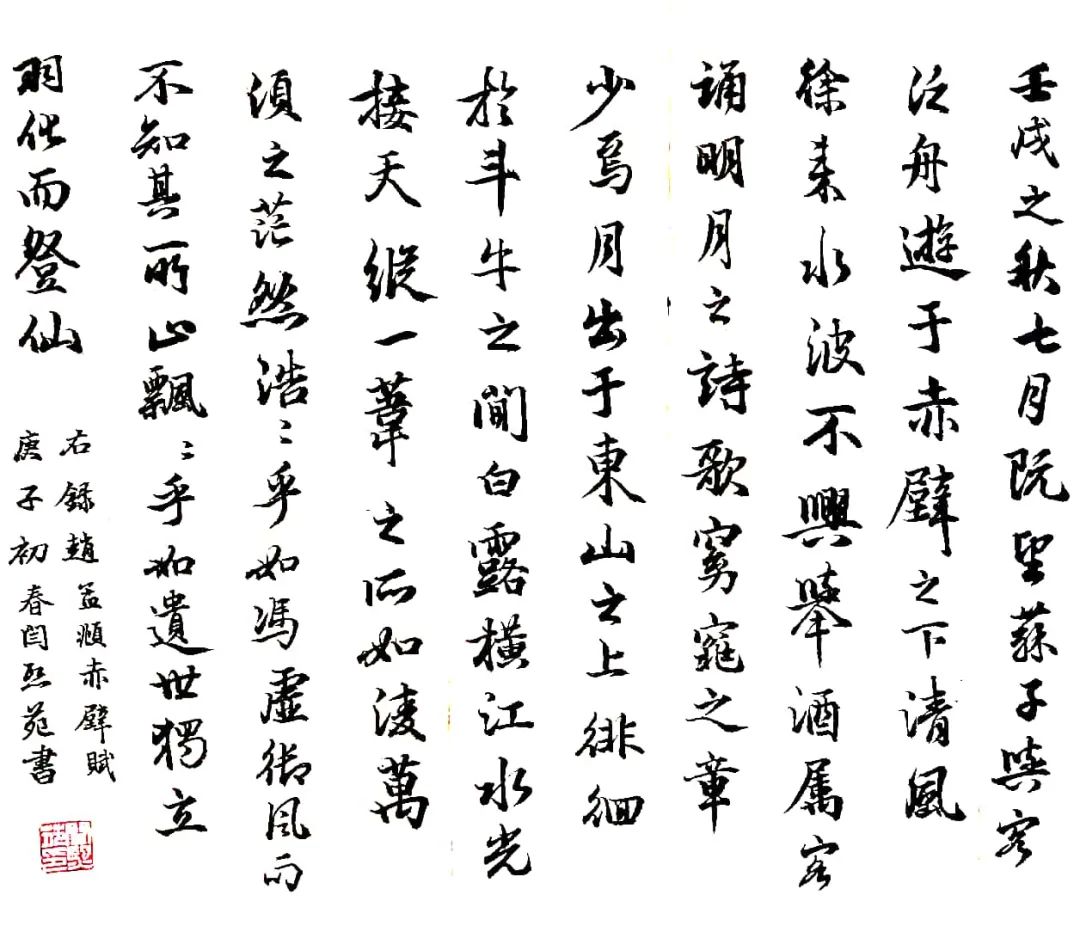 壬戌之秋七月既望蘇子與客
泛舟遊于赤壁之下清風
徐来水波不興舉酒属客
誦明月之詩歌窈窕之章
少焉月出于東山之上徘徊
於斗牛之間白露横江水光
接天縱一葦之所如凌萬
頃之茫然浩〻乎如馮虚御風而
不知其所止飄〻乎如遺世獨立
羽化而登仙
右録趙孟頫赤壁賦
庚子初春閆熙苑書